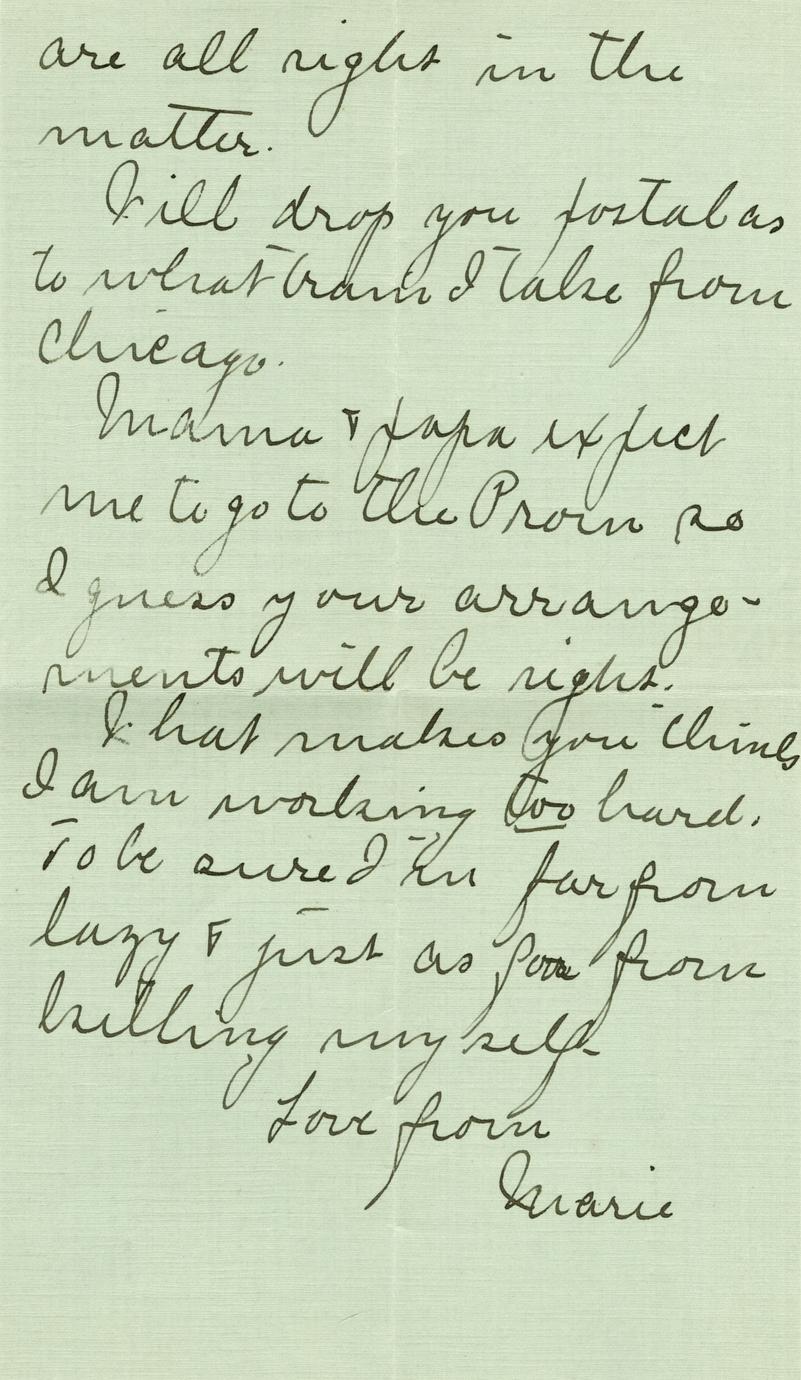 are all right in the
matter.
Will drop you postal as
to what train I take from
Chicago.
Mama & papa expect
me to go to the Prom so
I guess your arrange-
ments will be right.
What makes you think
I am working too hard.
To be sure I'm far from
lazy & just as far from
killing myself
Love from
Marie